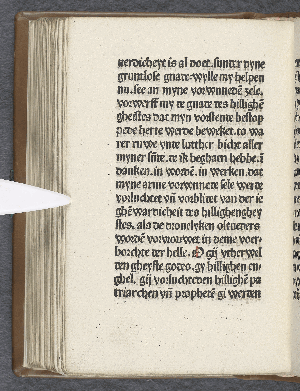 uerdicheyt is al doet. sunder dyne
gruntlose gnate. wylle my helpen
nu. see an myne vorwundede zele.
vorwerff my te gnate des hillighē
gheistes dat myn vorstente bestop
pede herte werde beweket. to wa
rer ruwe vnte lutther bicht aller
myner sūte. te ik begaen hebbe. ī
danken. in wordē. in werken. dat
myne arme vorwunte sele werde
vorluchtet vn̄ vorblitet van der ie
ghēwardicheit des hillighen ghey
stes. als de
worden vorwonet in deme voer
borchte ter helle. O gij
den gheyste godes. gy hillighen en
ghel. gij vorluchteden hillighē pa
triarchen vn̄ prophetē gi werden